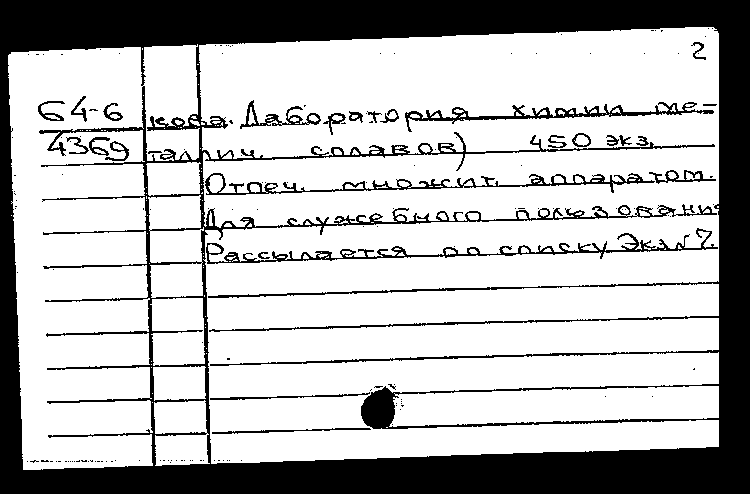 2
64-6 кова. Лаборатория химии ме=
4369 таллич. сплавов) 450 экз.
Отпеч. множит. аппаратом.
Для служебного пользования
Рассылается по списку Экз№7.